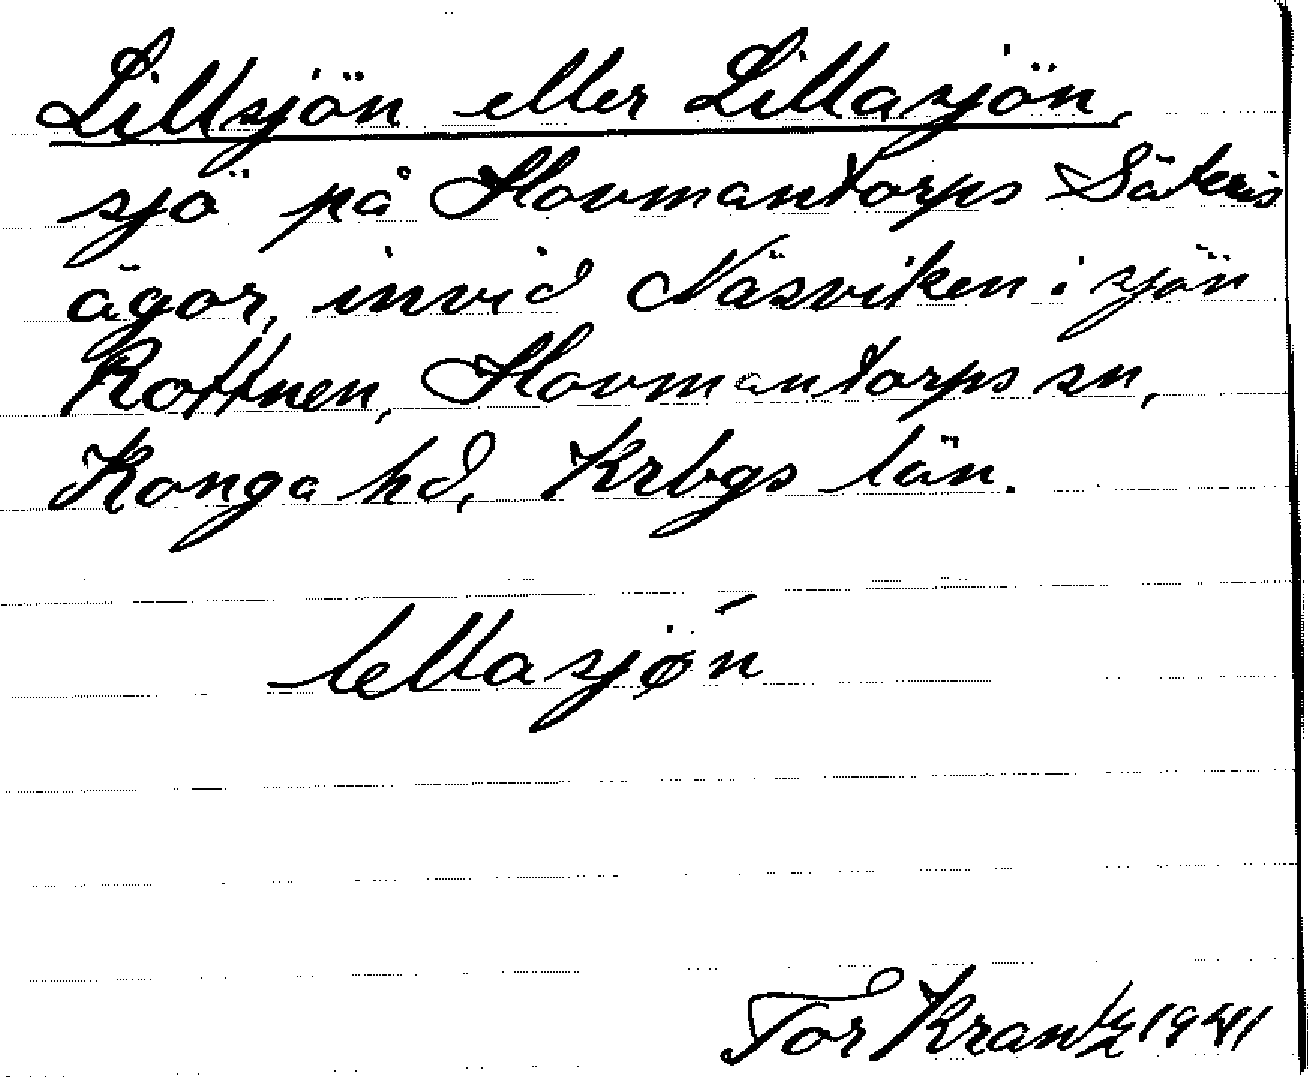 Lillsjön eller Lillasjön,
sjö på Hovmantorps Säteris
ägor, invid Näsviken i sjön
Rottnen, Hovmantorps sn,
Konga hd, Krbgs län.
lellasjøn
Tor Krantz 1941